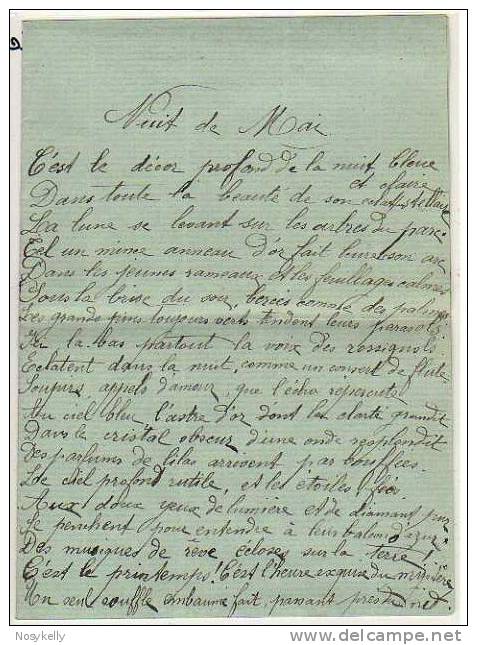 Nuit de Mai
C'est le décor profond de la nuit, bleue
et claire
Dans toute la beauté de son éclat stellaire
La lune se levant sur les arbres du parc
Tel un mince anneau d'or fait luire son arc
Dans les jeunes rameaux et les feuillages calmes
Sous la brise du soir, bercés comme des palmes
Les grands pins toujours verts tendent leurs parasols.
la bas partout la voix des rossignols
Eclatent dans la nuit, comme un concert de flûte
Soupirs, appels d'amour, que l'écho répercute
Au ciel bleu l'astre d'or dont la clarté grandit
Dans le cristal obscur d'une onde resplendit
Des parfums de lilas arrivent par bouffées.
Le ciel profond rutile, et les étoiles,
Aux doux yeux de lumière et de diamant pur
Se penchent pour entendre à leur balcon d'azur
Des musiques de rêve écloses sur la terre!
C'est le printemps! C'est l'heure exquise du mystère
Un seul souffle embaumé fait, passant près
Nosykelly
www.delcampe.net